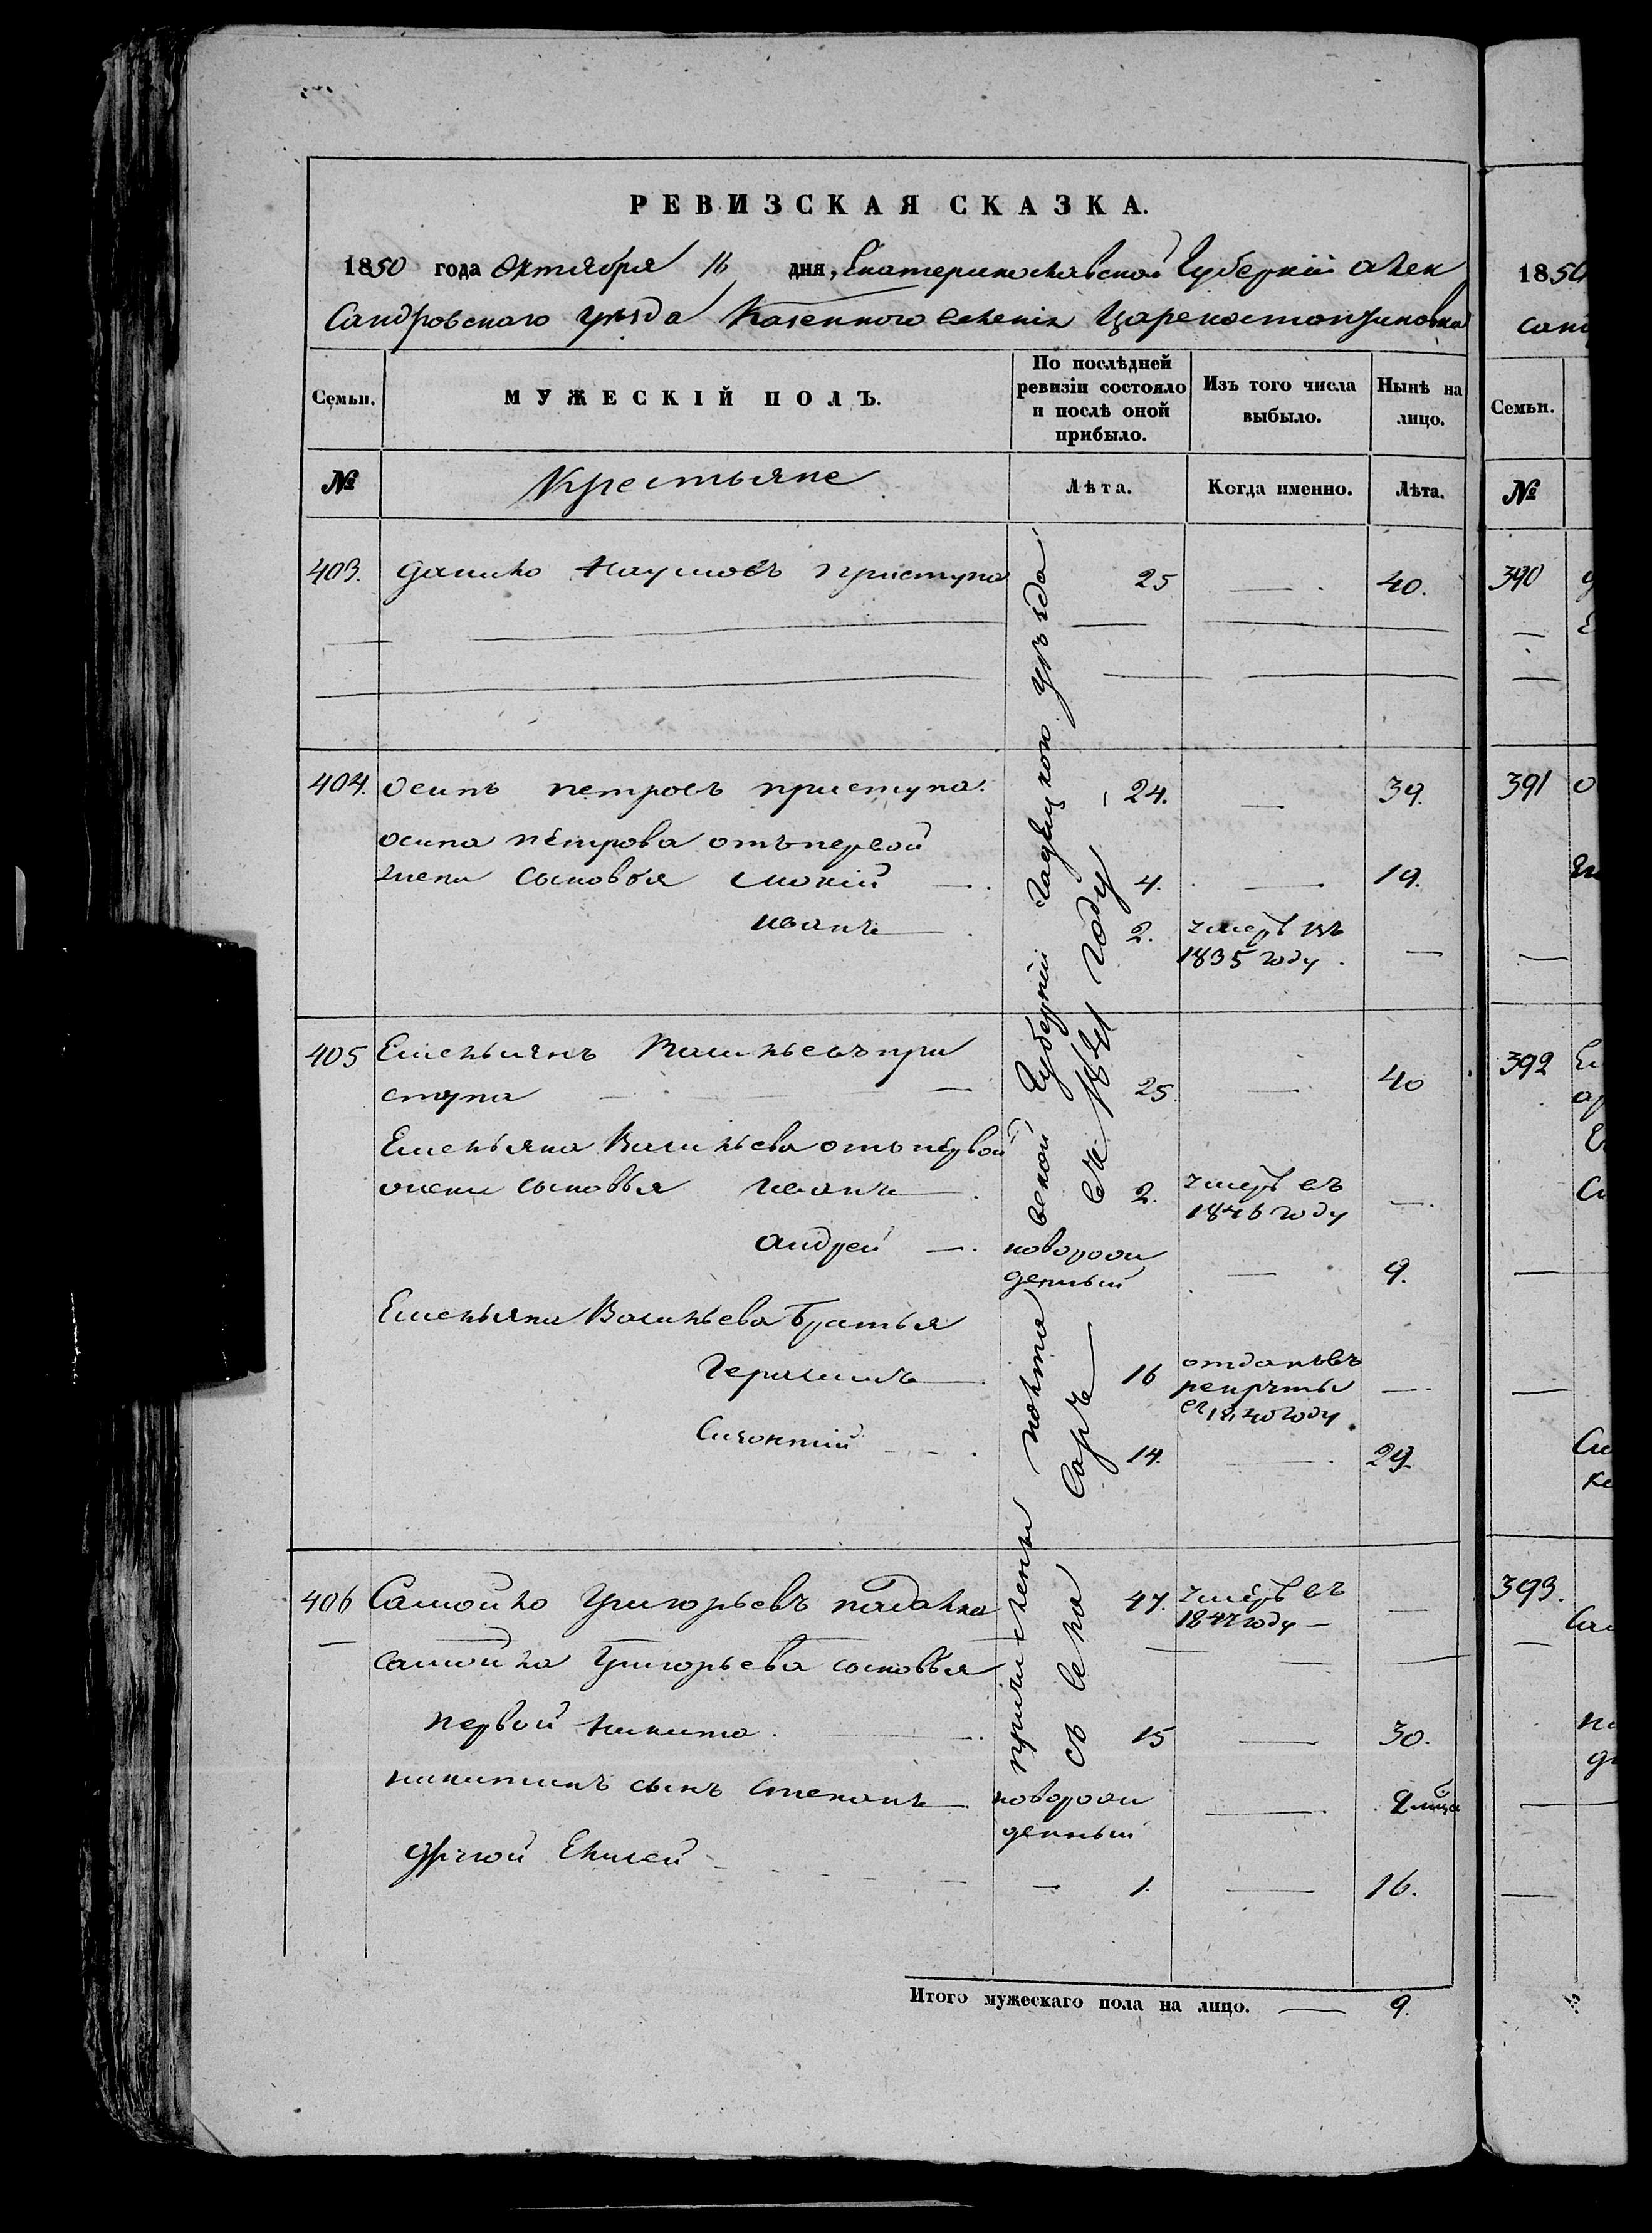 РЕВИЗСКАЯ СКАЗКА.
1850 года Октября 16 дня, Екатеринославской Губерніи алек
сандровскаго уѣзда Казенного селенія Цареконстантиновка
Семьи. МУЖЕСКІЙ ПОЛЪ. По послѣдней ревизіи состояло и послѣ оной прибыло. Изъ того числа выбыло. Нынѣ на лицо.
№ Крестьяне Лѣта. Когда именно. Лѣта.
403. данило Наумовъ приступа 25 — 40.
404. осипъ петровъ приступа. 24. — 39.
осипа петрова отъ первой
жены сыновья Мокій — 4. — 19.
иванъ — 2. умеръ въ —
1835 году.
405 Емельянъ Васильевъ при
ступа — 25. — 40
Емельяна Васильева отъ первой
жены сыновья иванъ — 2. умеръ въ —
1846 году
андрей — новорож
денный — 9.
Емельяна Васильева братья
Герасимъ — 16 отданъ въ
рекруты —
въ 1840 году
Леонтій 14. — 29.
406 Самойло Григорьевъ 47. умеръ въ —
1847 году —
самойла Григорьева сыновья
первой никита. 15 — 30.
никитинъ сынъ степанъ — новорож
денный —
другой Елисей — 1. — 16.
причислены полтавской Губерніи Гадяцкого уѣзда
съ села въ году
Итого мужескаго пола на лицо. — 9.
1850
санд
Семьи.
№
390
391
392
393.